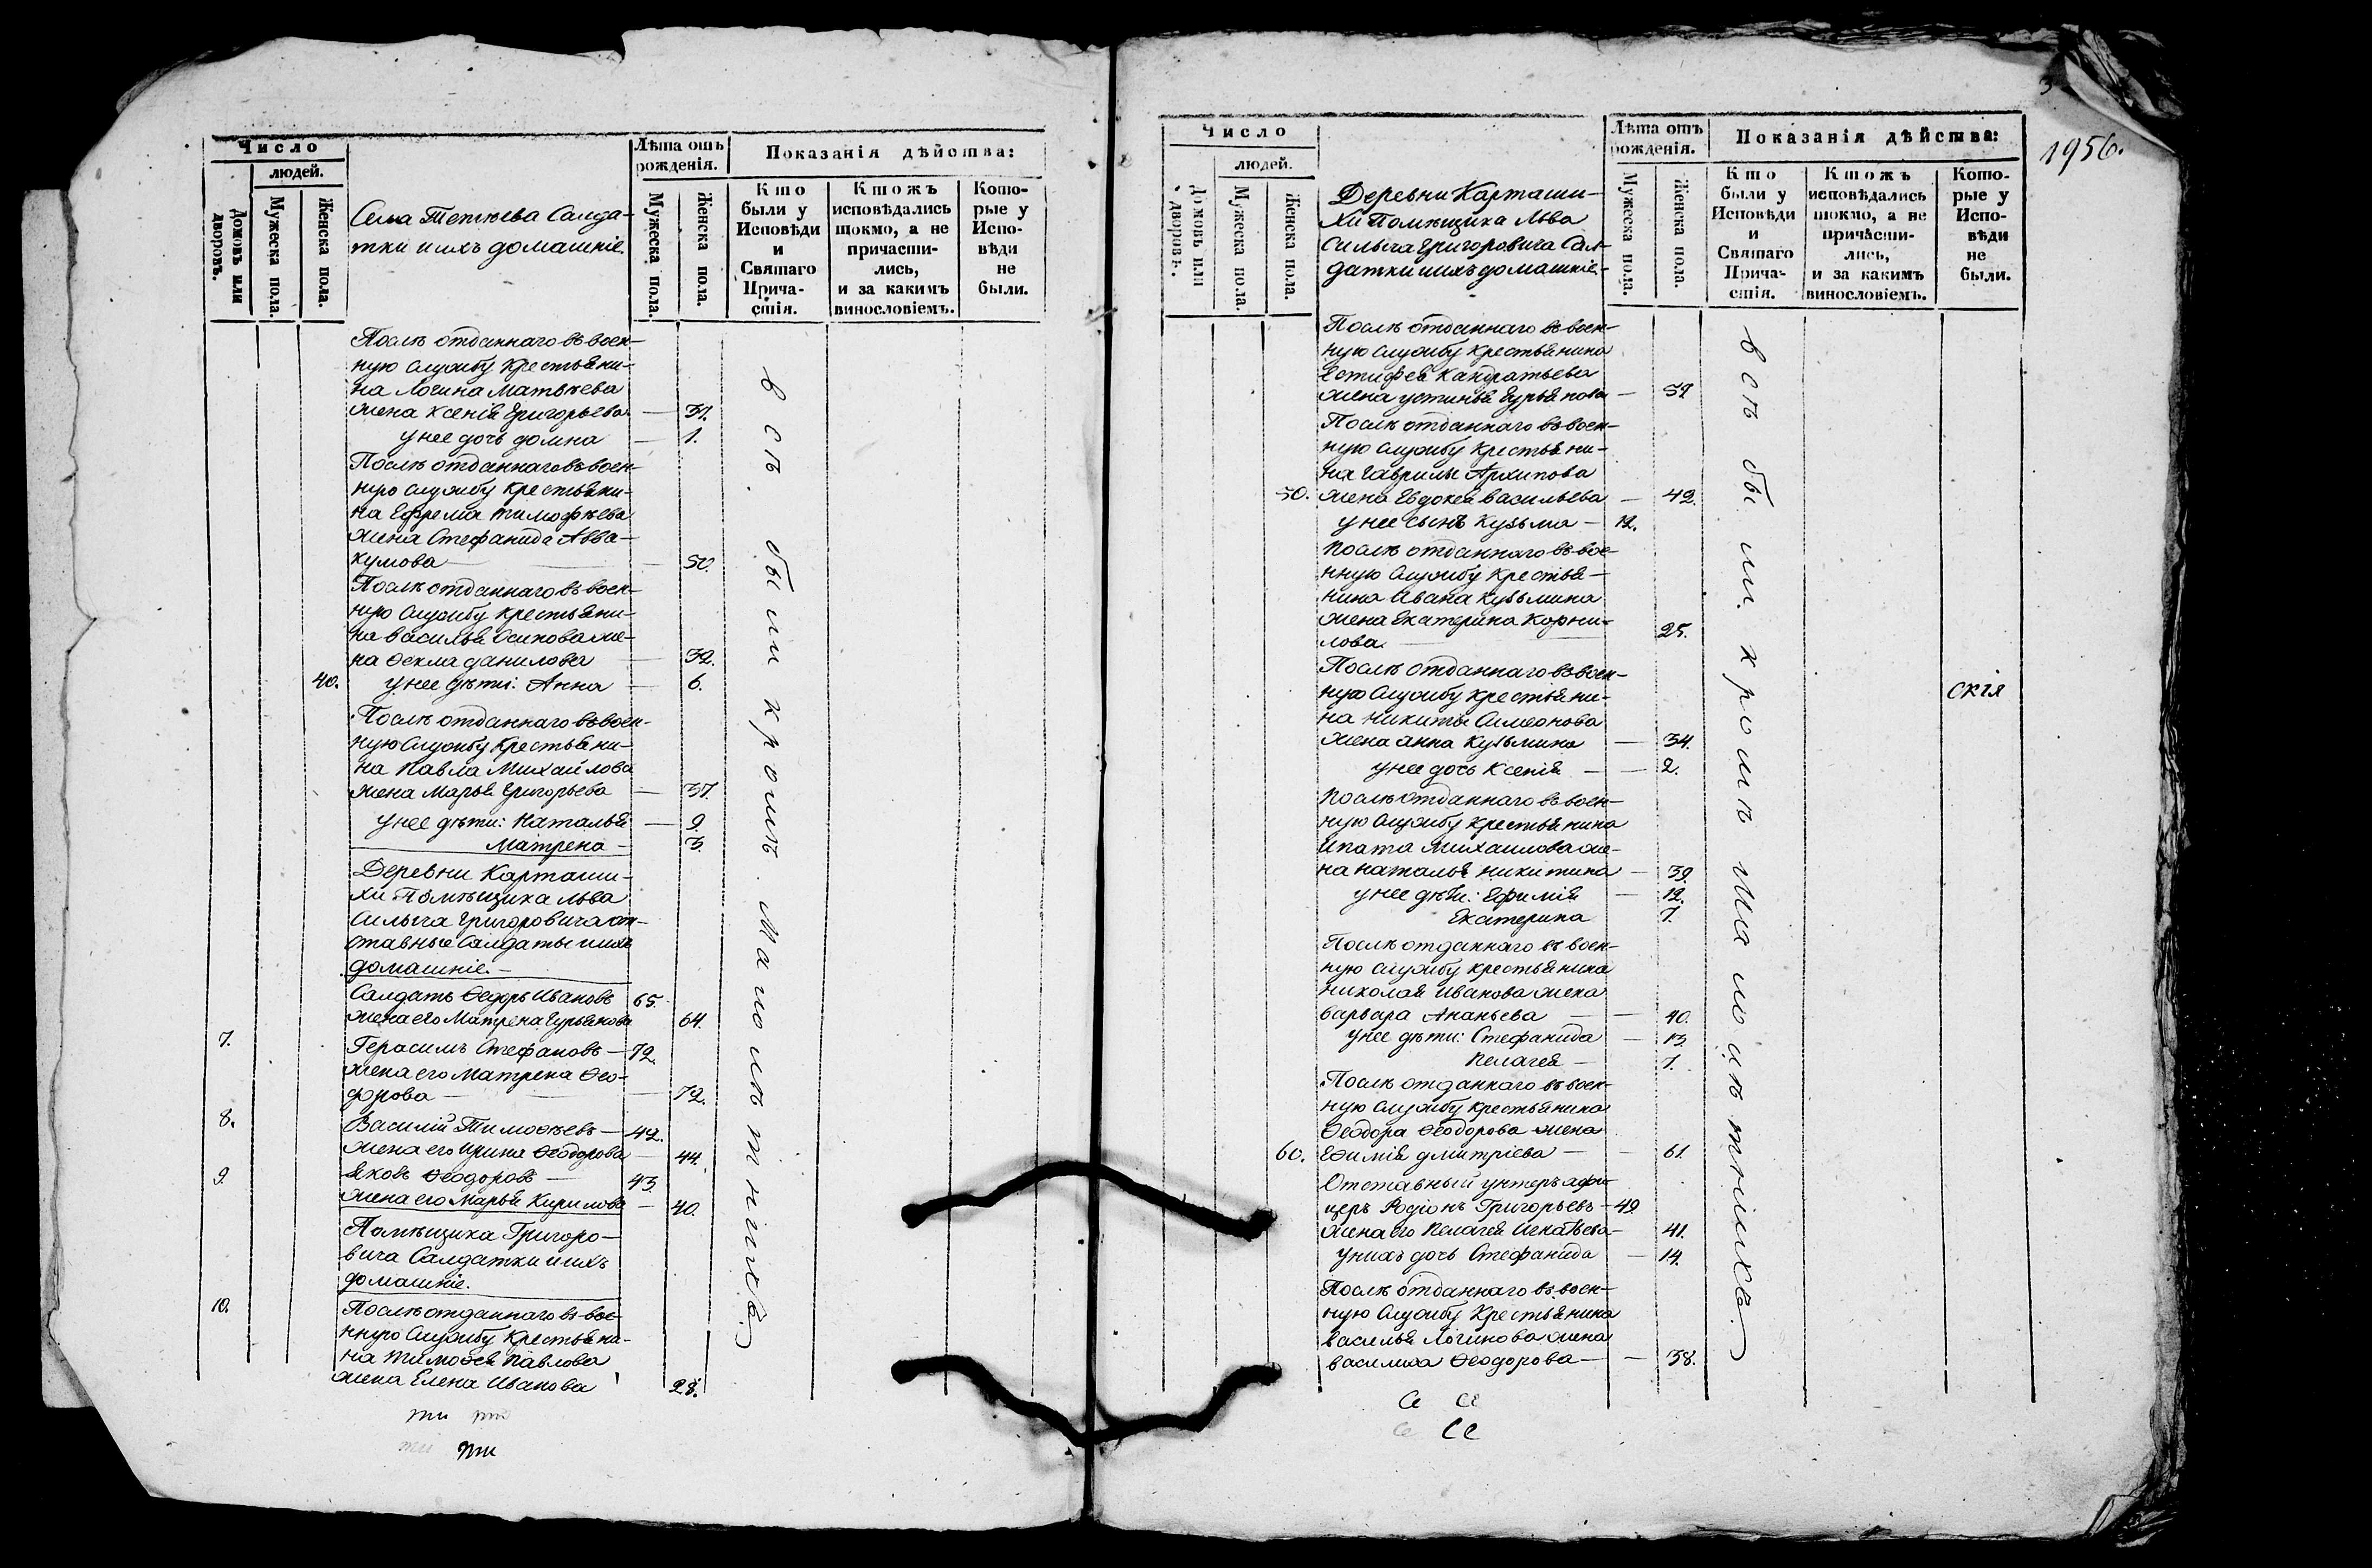 Число
людей.
Домовъ или дворовъ.
Мужеска пола.
Женска пола.
Села Тетѣева Салда-
тки и ихъ домашніе.
Лѣта отъ рожденія.
Мужеска пола.
Женска пола.
Показанія дѣйства:
Кто были у Исповѣди и Святаго Прича-стія.
Ктожъ исповѣдались токмо, а не причасти-лись, и за какимъ винословіемъ.
Кото-рые у Испо-вѣди не были.
Послѣ отданнаго въ воен-
ную службу крестьяни-
на Логина Матвѣева
жена Ксенія Григорьева — 31.
у нее дочь домна — 1.
Послѣ отданнаго въ воен-
ную службу крестьяни-
на Ефрема тимофѣева
жена Стефанида Авва-
кумова — 50.
Послѣ отданнаго въ воен-
ную службу крестьяни-
на василья Осипова же-
на Ѳекла данилова — 32.
40. у нее дѣти: Анна — 6.
Послѣ отданнаго въ воен-
ную службу крестьяни-
на Павла Михайлова
жена Марья Григорьева — 37.
у нее дѣти: Наталья — 9.
Матрена — 3.
Деревни Карташи-
хи Помѣщика Льва
Силыча Григоровича от-
ставные Салдаты и ихъ
домашніе. —
Салдатъ Ѳедоръ Ивановъ 65.
жена его Матрена Гурьянова 64.
7. Герасимъ Стефановъ — 72.
жена его Матрена Ѳео-
дорова — 72.
8. Василій Тимоѳѣевъ — 42.
жена его Ирина Ѳеодорова — 44.
9. Яковъ Ѳеодоровъ — 43.
жена его Марья Кирилова — 40.
Помѣщика Григоро-
вича Салдатки и ихъ
домашніе.
10. Послѣ отданнаго въ вое-
нную службу крестьяни-
на тимоѳея Павлова
жена Елена Иванова 28.
всѣ были кромѣ малолѣтнихъ
ти ти
ти ти
1956.
Число
людей.
Домовъ или дворовъ.
Мужеска пола.
Женска пола.
Деревни Карташи-
хи Помѣщика Льва
Силыча Григоровича Сал-
датки и ихъ домашніе.
Лѣта отъ рожденія.
Мужеска пола.
Женска пола.
Показанія дѣйства:
Кто были у Исповѣди и Святаго Прича-стія.
Ктожъ исповѣдались токмо, а не причасти-лись, и за какимъ винословіемъ.
Кото-рые у Испо-вѣди не были.
Послѣ отданнаго въ воен-
ную службу крестьянина
Естифея Кандратьева
жена устинья Гурьянова — 52
Послѣ отданнаго въ воен-
ную службу крестьяни-
на Гаврилы Архипова
50. жена Евдокея васильева — 42.
у нее сынъ Кузьма — 12.
послѣ отданнаго въ вое-
нную службу крестья-
нина Ивана Кузьмина
жена Екатерина Корни-
лова. 25.
Послѣ отданнаго въ воен-
ную службу крестьяни-
на Никиты Симеонова
жена анна Кузьмина — 34.
у нее дочь Ксенія — 2.
послѣ отданнаго въ воен-
ную службу крестьянина
Ипата Михаилова же-
на наталья никитина — 39.
у нее дѣти: Ефимія — 12.
Екатерина 7.
Послѣ отданнаго въ воен-
ную службу крестьянина
николая Иванова жена
варвара Ананьева — 40.
у нее дѣти: Стефанида — 13.
Пелагея — 7.
Послѣ отданнаго въ воен-
ную службу крестьянина
Ѳеодора Ѳеодорова жена
60. Еѳимія дмитріева — 61.
Отставный унтеръ афи-
церъ Родіонъ Григорьевъ — 49
жена его Пелагея Игнатьева — 41.
у нихъ дочь Стефанида — 14.
Послѣ отданнаго въ воен-
ную службу крестьянина
василья Логинова жена
василиса Ѳеодорова — 38.
всѣ были кромѣ малолѣтнихъ
скія